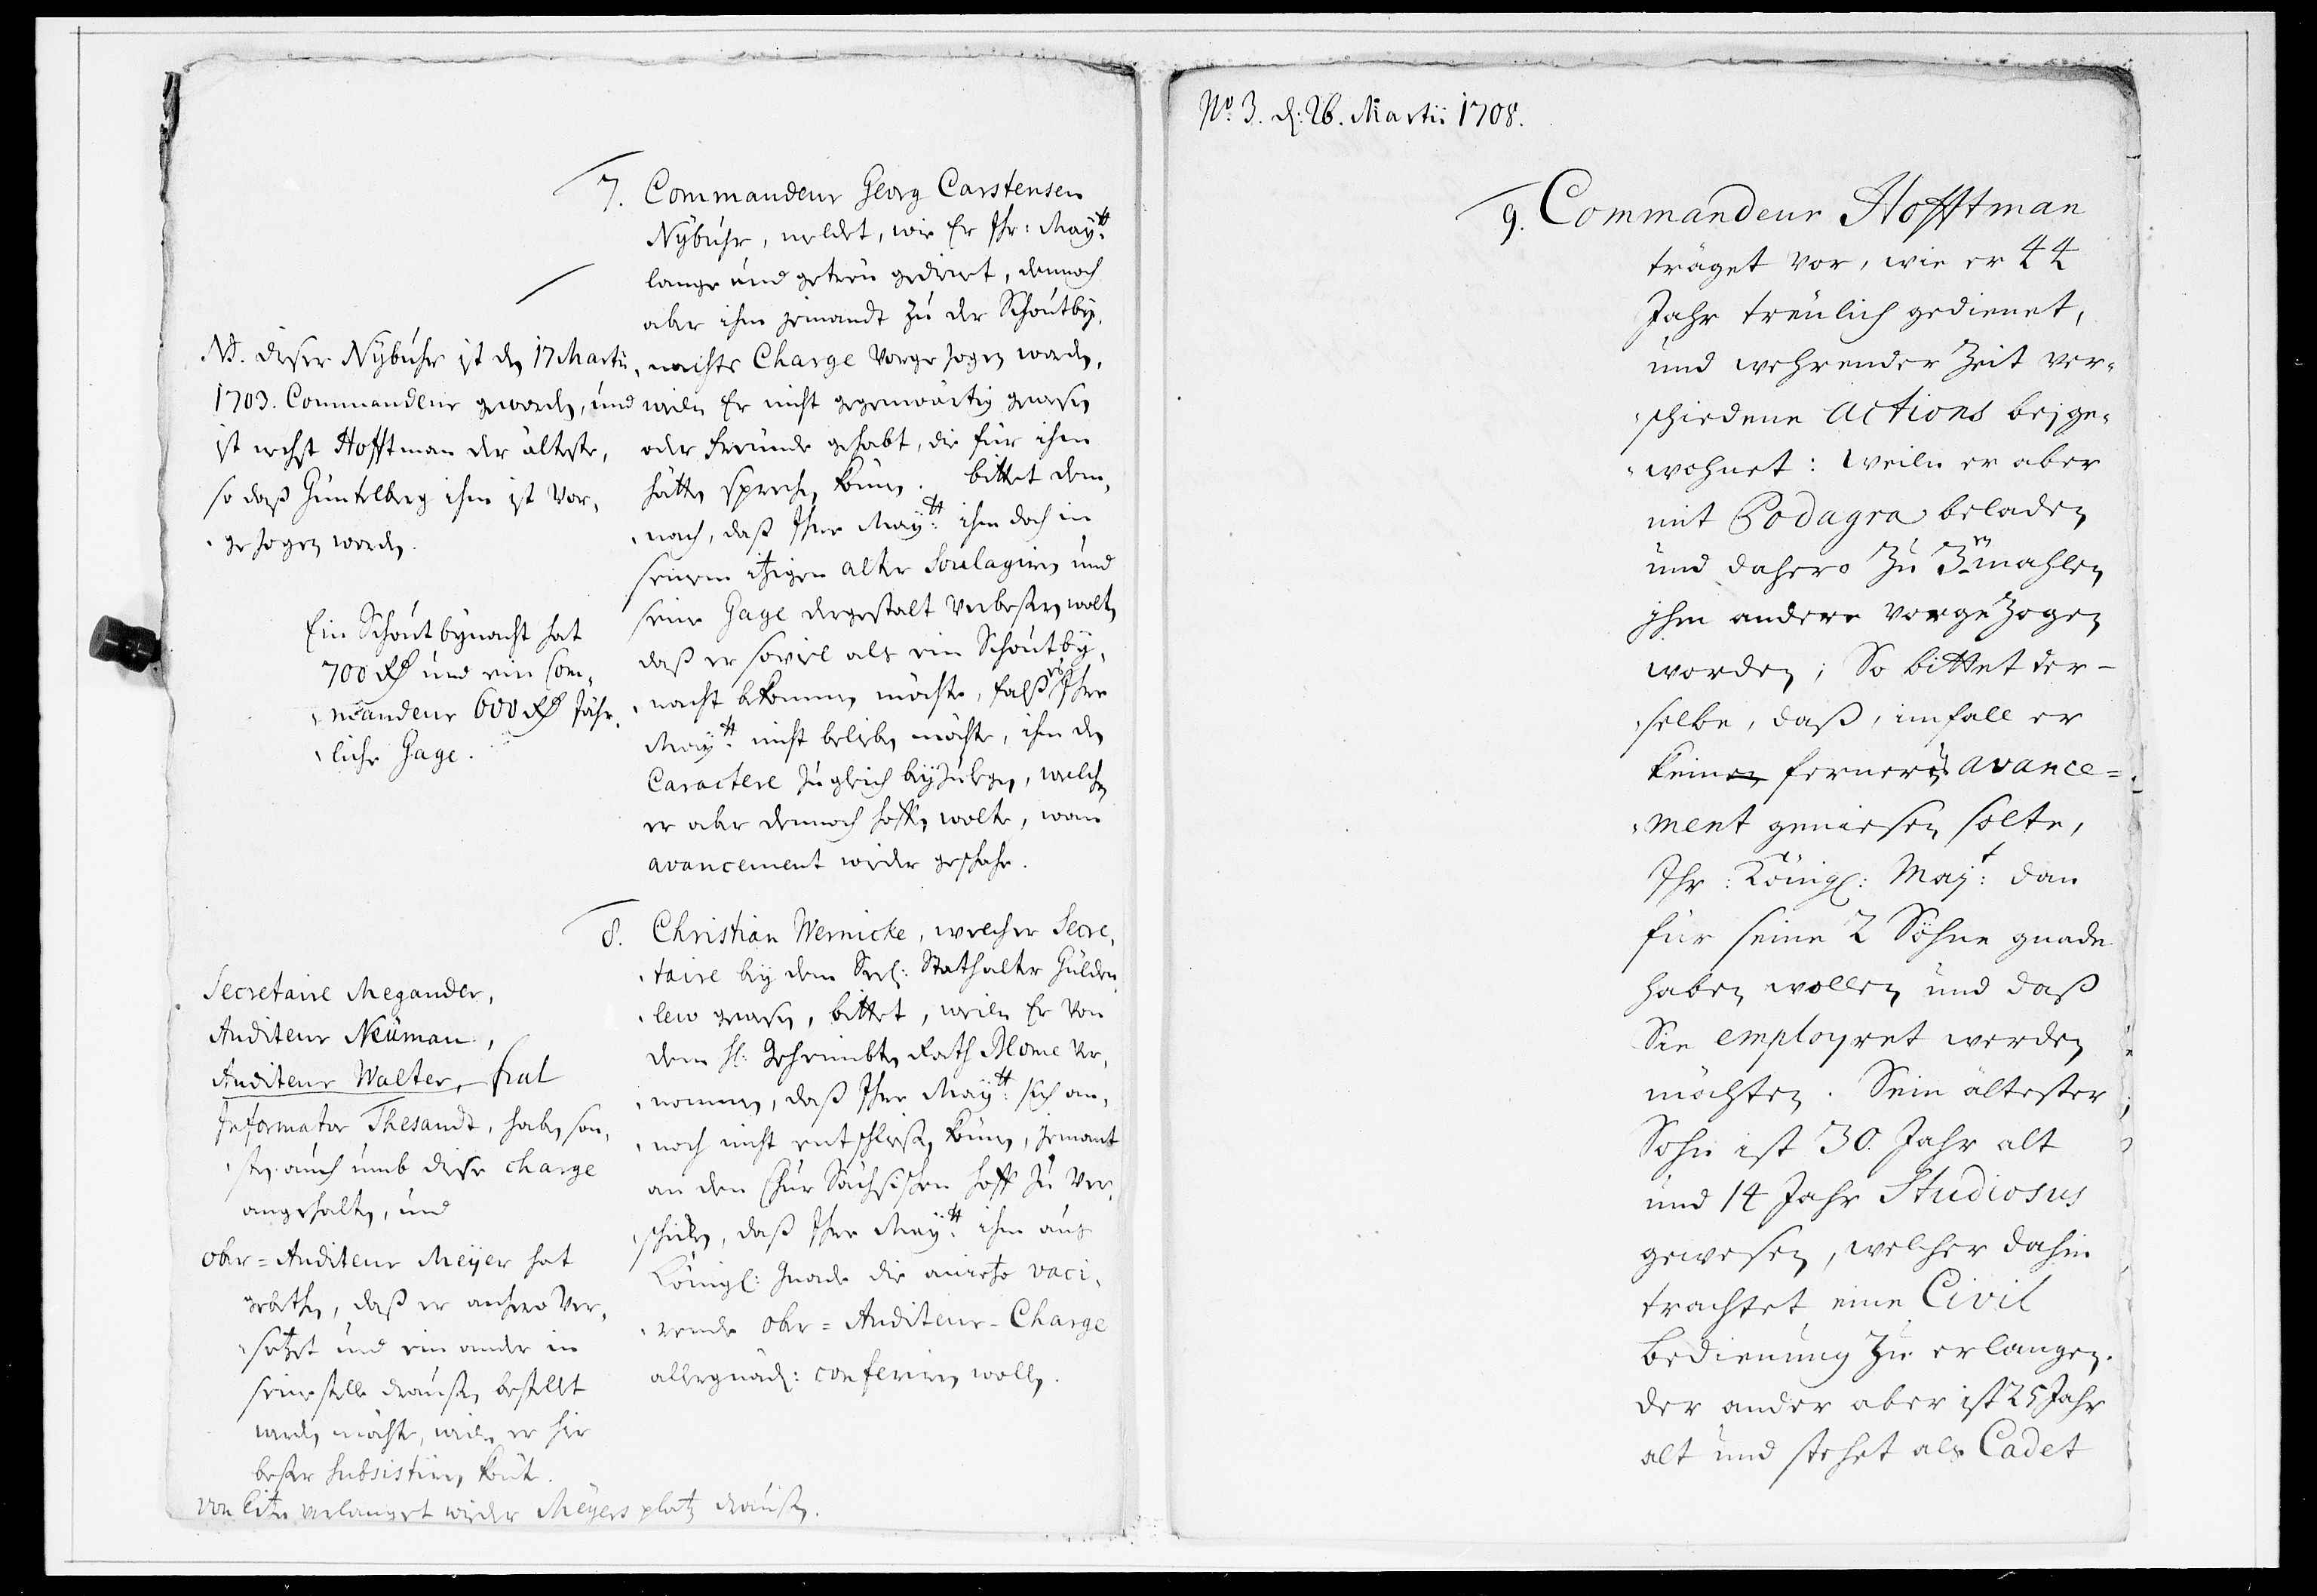 7. Commandeur Georg Carstensen
Nÿbuhr, meldet, wie Er Ihr: Maÿtt:
lange und getreu gedienet, dennoch
aber ihm jemandt zu der Schoutbÿ,
nachts Charge vorgezogen worden,
weiln Er nicht gegenwärtig gewesen
oder freunde gehabt, die für ihm
hätten sprechen können. bittet dem,
nach, daß Ihre Maÿtt: ihm doch in
seinem itzigen alter Soulagiren und
seine Gage dergestalt verbeßern wolten
daß er soviel als ein Schoutbÿ,
nacht bekommen möchte, falß es Ihre
Maÿtt: nicht belieben möchte, ihm den
Caractere zugleich beÿzulegen, welchen
er aber dennoch hoffen wolte, wan
avancement wieder geschehe.
NB. dieser Nÿbuhr ist den 17 Martii
1703. Commandeur geworden, und
ist nechst Hofftman der älteste,
so daß Güntelberg ihm ist vor,
gezogen worden.
Ein Schoutbÿnacht hat
700 Rthl und ein Com,
mandeur 600 Rthl Jähr,
liche Gage.
8. Christian Wernicke, welcher Secre,
taire beÿ dem Seel: Stathalter Gülden,
lew gewesen, bittet, weiln Er von
dem H: Geheimbten Rath Blome ver,
nommen, daß Ihre Maÿtt: sich an,
noch nicht entschließen können, jemant
an den Chur Sächsischen Hoff zu ver,
schicken, daß Ihre Maÿtt: ihm aus
Königl: Gnade die anietzo vaci,
rende ober=Auditeur-Charge
allergnäd: conferiren wollen.
Secretaire Megander,
Auditeur Neüman,
Auditeur Walter,
Informator Thesandt, haben son,
sten auch umb diese charge
angehalten, und
ober=Auditeur Meÿer hat
gebethen, daß er anhero ver,
setzet und ein ander in
seine stelle draußen bestellt
werden möchte, weiln er hier
beßer subsistiren könte.
von verlanget wieder Meÿers platz draußen.
No: 3. d: 26. Martii 1708.
9. Commandeur Hofftman
träget vor, wie er 44
Jahr treulich gedienet,
und wehrender Zeit ver,
schiedene actions beyge,
wohnet: weiln er aber
mit Podagra beladen
und dahero zu 3en mahlen
ihm andere vorgezogen
worden; So bittet der-
selbe, daß, imfall er
kein ferneres avance=
ment geniesen solte,
Ihr: Königl: Mayt: dan
für seine 2 Söhne gnade
haben wollen und daß
Sie employret werden
möchten. Sein ältester
Sohn ist 30. Jahr alt
und 14 Jahr Studiosus
gewesen, welcher dahin
trachtet eine Civil
bedienung zu erlangen.
der ander aber ist 25 Jahr
alt und stehet als Cadet